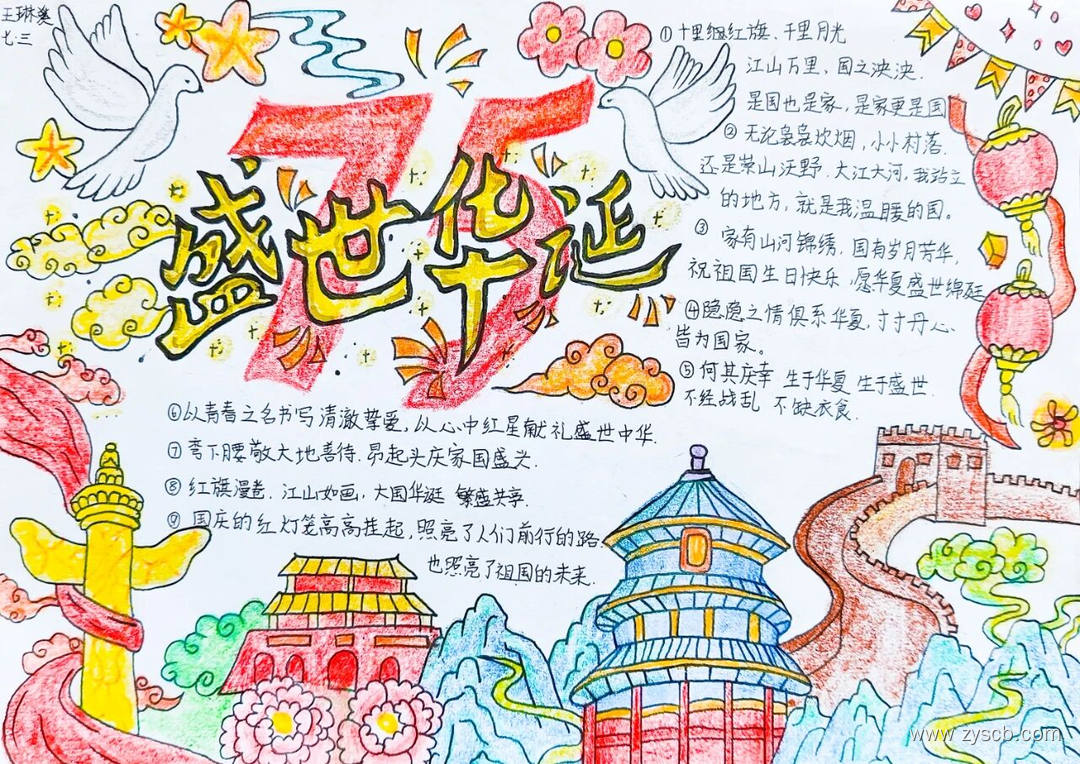 王琳
七.三
75
盛世华诞
①十里红旗、千里月光
江山万里，国之泱泱.
是国也是家，是家更是国
②无论袅袅炊烟，小小村落.
还是崇山沃野.大江大河，我站立
的地方，就是我温暖的国。
③ 家有山河锦绣，国有岁月芳华，
祝祖国生日快乐，愿华夏盛世绵延
④隐隐之情俱系华夏，寸寸丹心
皆为国家。
⑤何其庆幸 生于华夏 生于盛世.
不经战乱 不缺衣食.
⑥以青春之名书写清澈挚爱，以心中红星献礼盛世中华.
⑦弯下腰敬大地喜待.昂起头庆家国盛.
⑧红旗漫卷.江山如画，大国华诞 繁盛共享.
⑨国庆的红灯笼高高挂起，照亮了人们前行的路.
也照亮了祖国的未来.
www.zyscb.com